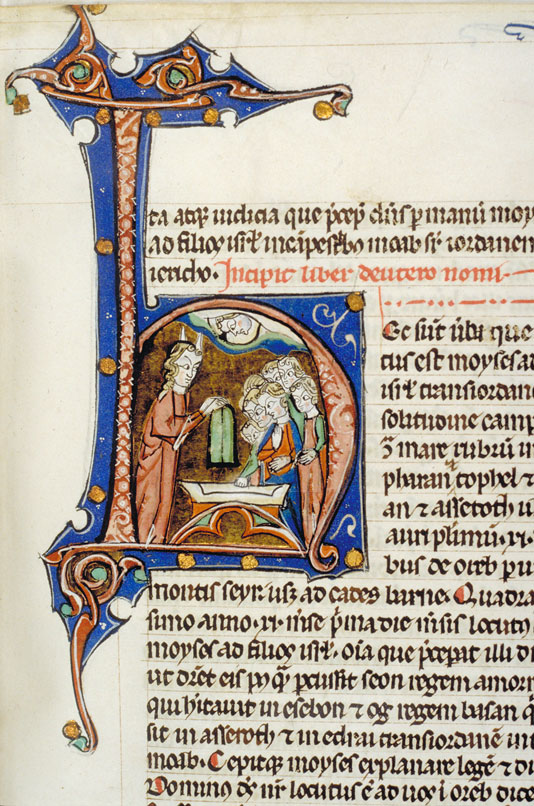 ta atq; iudicia que p̄cep̄ dn̄s p̄ manū moy
ad filios isrl̄ in cāpestrib; moab sup̄ iordanem
iericho. Incipit liber deuteronomi
Hec sūt ūba que
tus est moyses ad
isrl̄ trans iordanē
solitudine camp
ꝯ mare rubrū in
pharan ⁊ tophel ⁊
an ⁊ asseroth u
auri plimū. xi.
bus de oreb p̄ ui
montis seyr usq; ad cades barne. Quadra
simo anno. xi. mēse p̄ma die mēsis locutꝰ
moyses ad filios isrl̄. oīa que p̄cepit illi dn̄
ut dicēt eis pꝰ q̄ꝫ pcussit seon regem amorr
qui hītauit in esebon ⁊ og regem basan q̄
sit in asseroth ⁊ in edrai trans iordanē in
moab. Cepitq; moyses explanare legē ⁊ di
Dominus ds̄ nr̄ locutus ē ad nos ī oreb dice